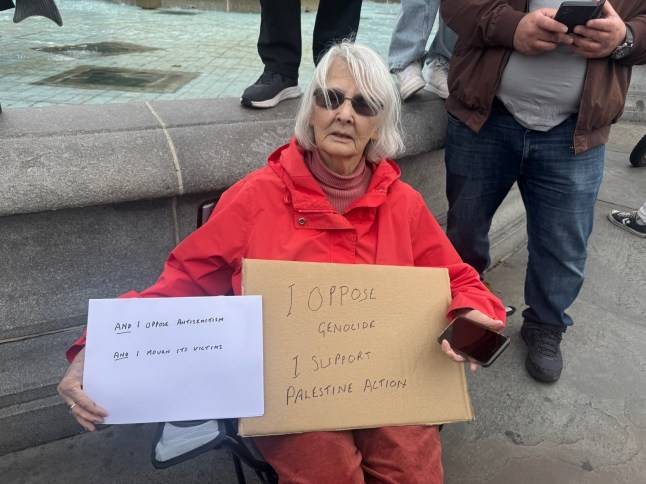 AND I OPPOSE ANTISEMITISM
AND I MOURN ITS VICTIMS
I OPPOSE
GENOCIDE
I SUPPORT
PALESTINE ACTION